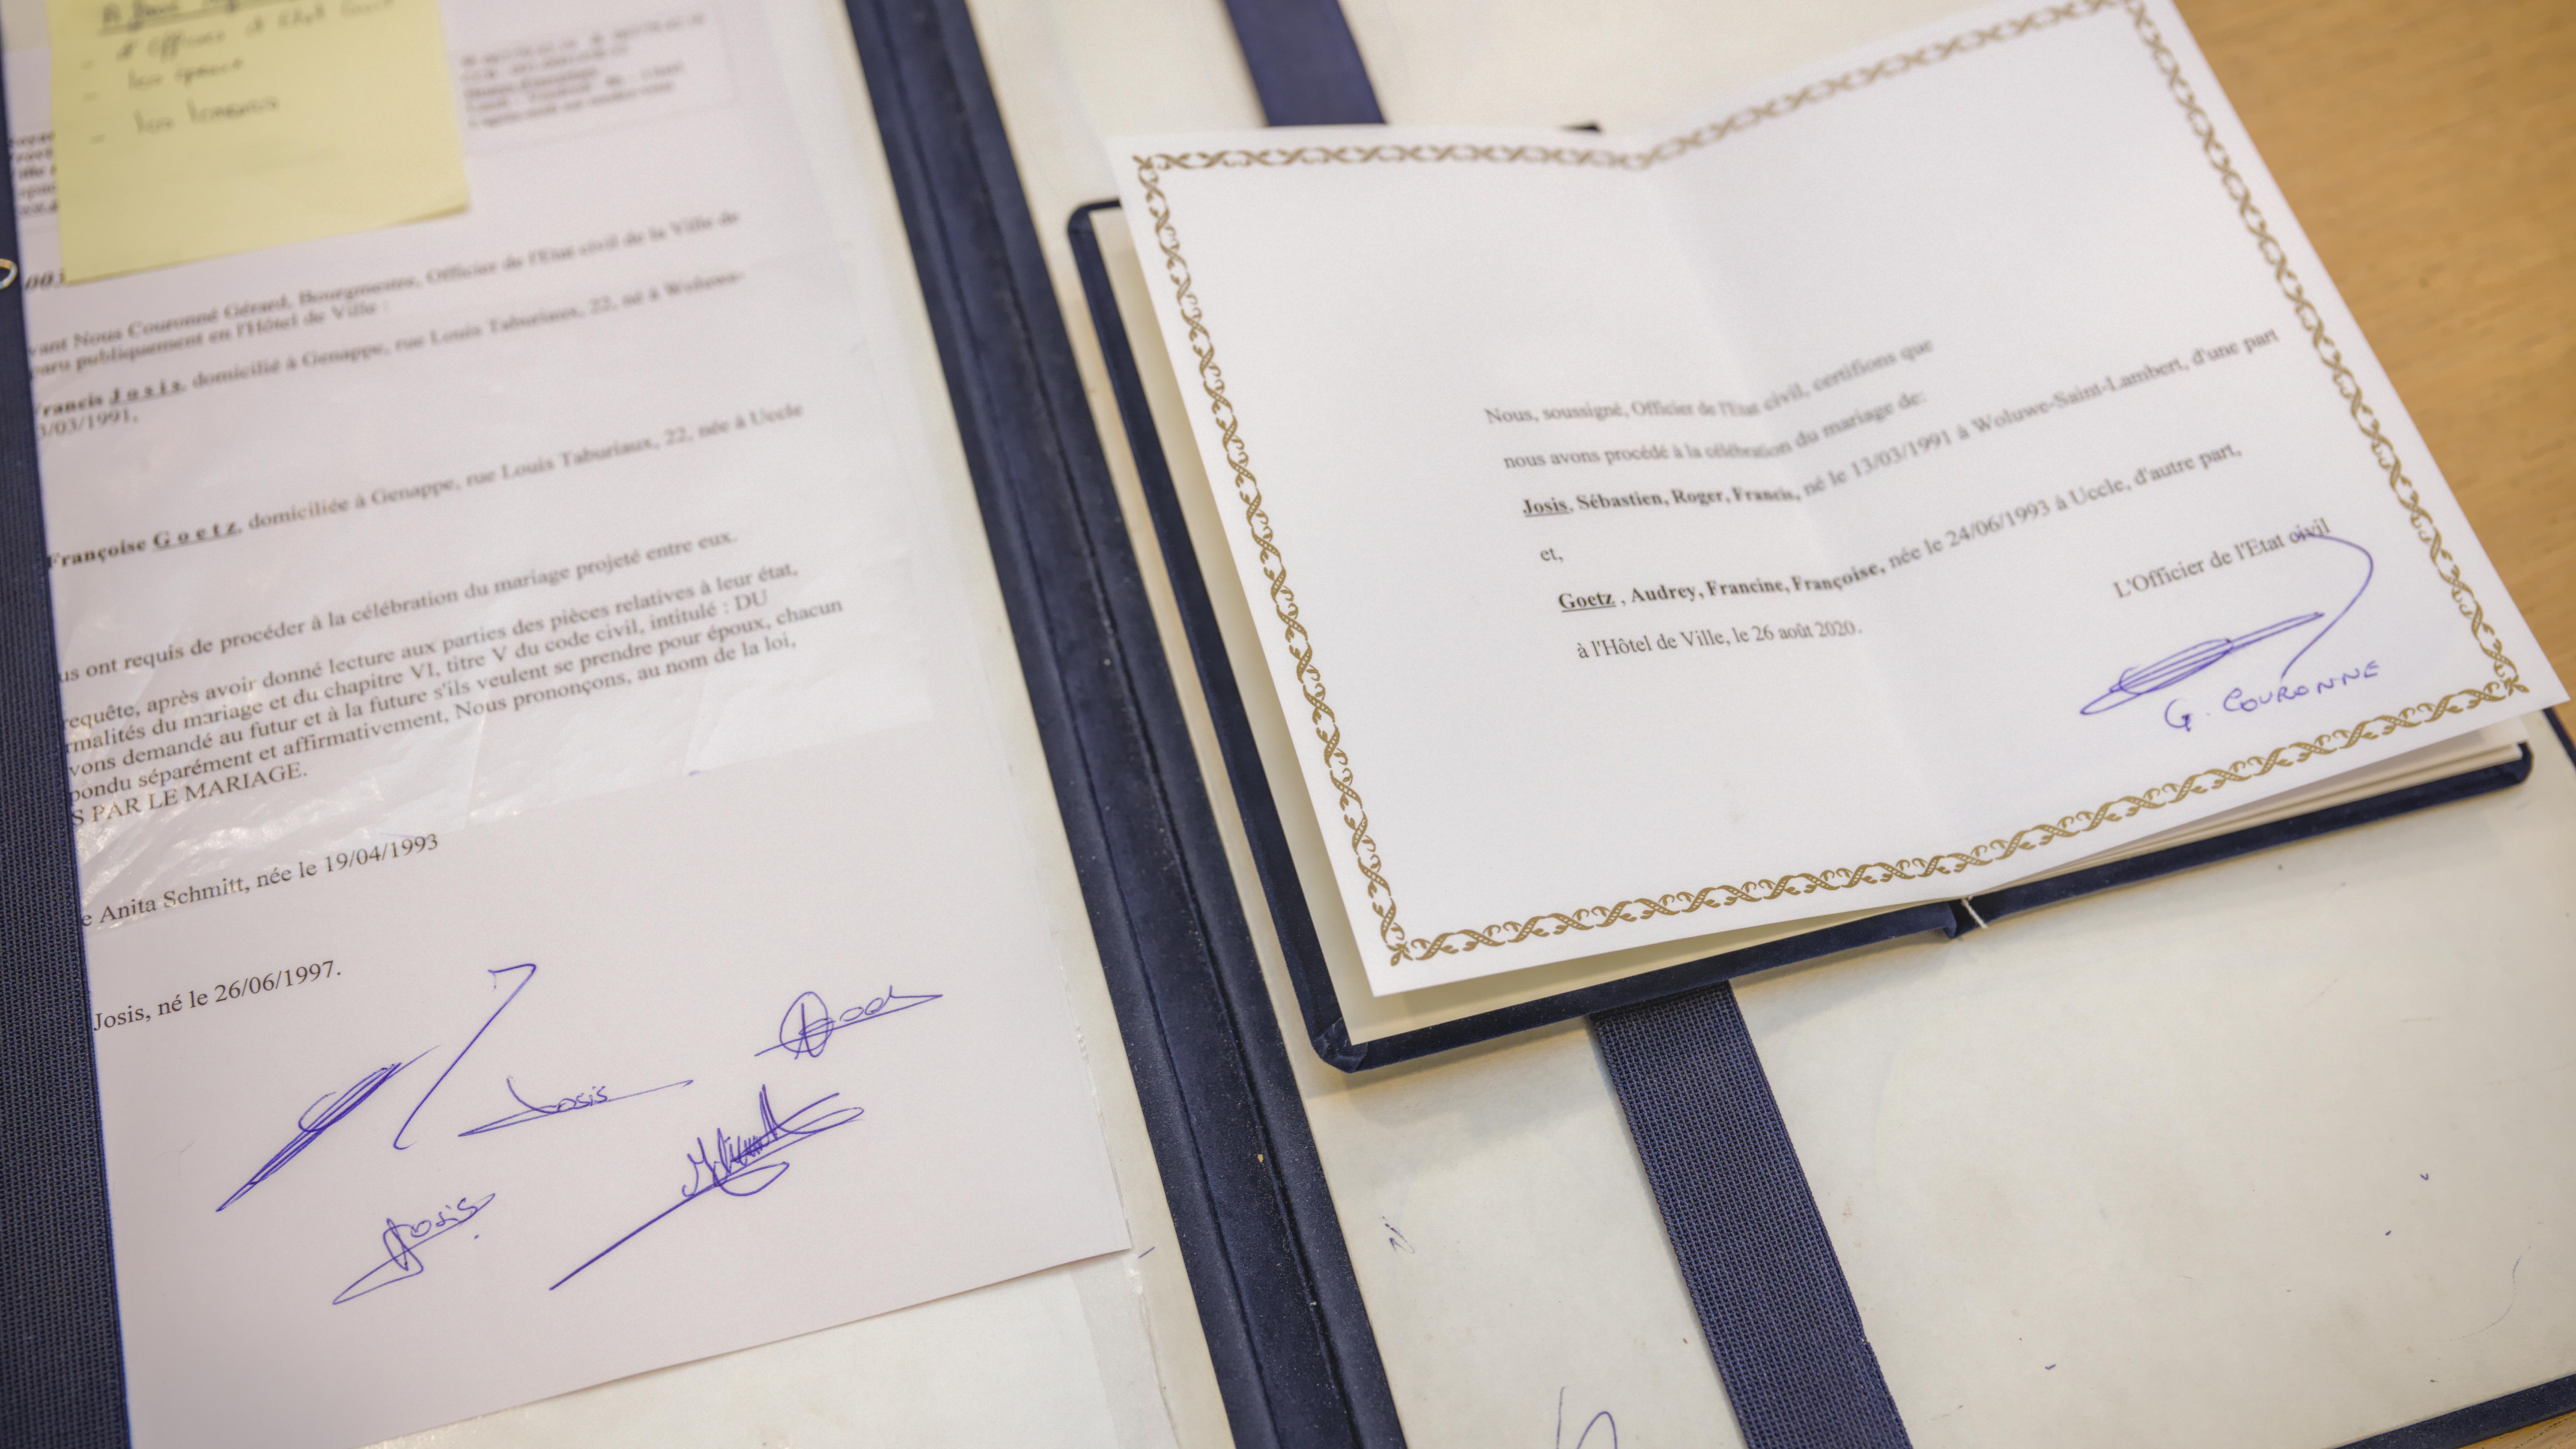 les témoins
003
vant Nous Couronné Gérard, Bourgmestre, Officier de l'Etat civil de la Ville de
paru publiquement en l'Hôtel de Ville :
Francis Josis, domicilié à Genappe, rue Louis Taburiaux, 22, né à Woluwe-
3/03/1991,
Françoise Goetz, domiciliée à Genappe, rue Louis Taburiaux, 22, née à Uccle
us ont requis de procéder à la célébration du mariage projeté entre eux.
requête, après avoir donné lecture aux parties des pièces relatives à leur état,
rmalités du mariage et du chapitre VI, titre V du code civil, intitulé : DU
vons demandé au futur et à la future s'ils veulent se prendre pour époux, chacun
pondu séparément et affirmativement, Nous prononçons, au nom de la loi,
S PAR LE MARIAGE.
e Anita Schmitt, née le 19/04/1993
Josis, né le 26/06/1997.
Josis
Josis
Nous, soussigné, Officier de l'Etat civil, certifions que
nous avons procédé à la célébration du mariage de:
Josis, Sébastien, Roger, Francis, né le 13/03/1991 à Woluwe-Saint-Lambert, d'une part
et,
Goetz , Audrey, Francine, Françoise, née le 24/06/1993 à Uccle, d'autre part,
à l'Hôtel de Ville, le 26 août 2020.
L'Officier de l'Etat civil
G. COURONNE